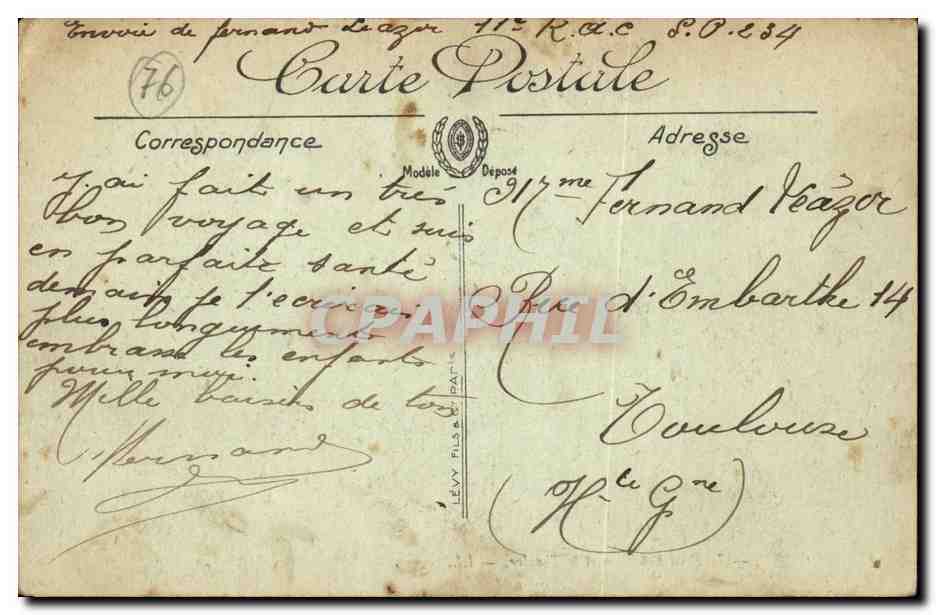 Envoie de fernand Léazor 11e R.a.c S.P. 234
76
Carte Postale
Correspondance
Adresse
Modèle Déposé
J'ai fait un très
bon voyage et suis
en parfaite santé
demain je t'ecrirai
plus longuement
embrasse les enfants
pour moi.
Mille baisers de ton
Fernand
Mme Fernand Léazor
Rue d'Embarthe 14
Toulouse
(Hte Gne)
LÉVY FILS & Cie PARIS
CPAPHIL